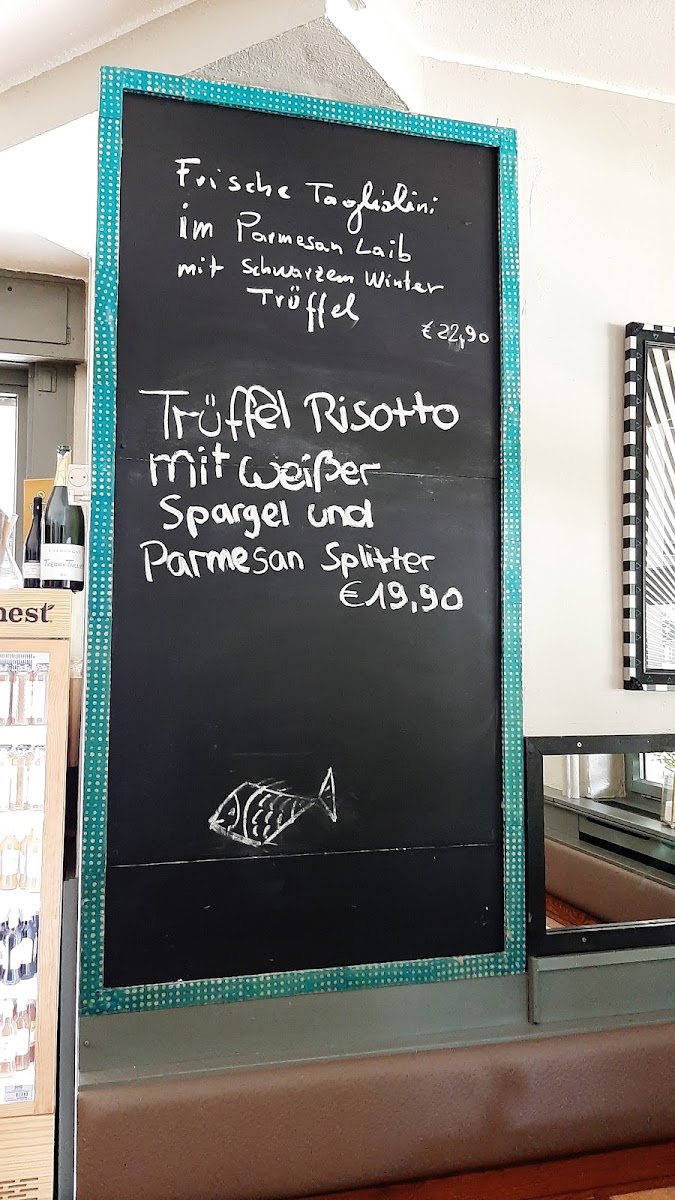 Frische Tagliolini
im Parmesan Laib
mit schwarzem Winter
Trüffel
€ 22,90
Trüffel Risotto
mit weißer
Spargel und
Parmesan Splitter
€19,90
nest